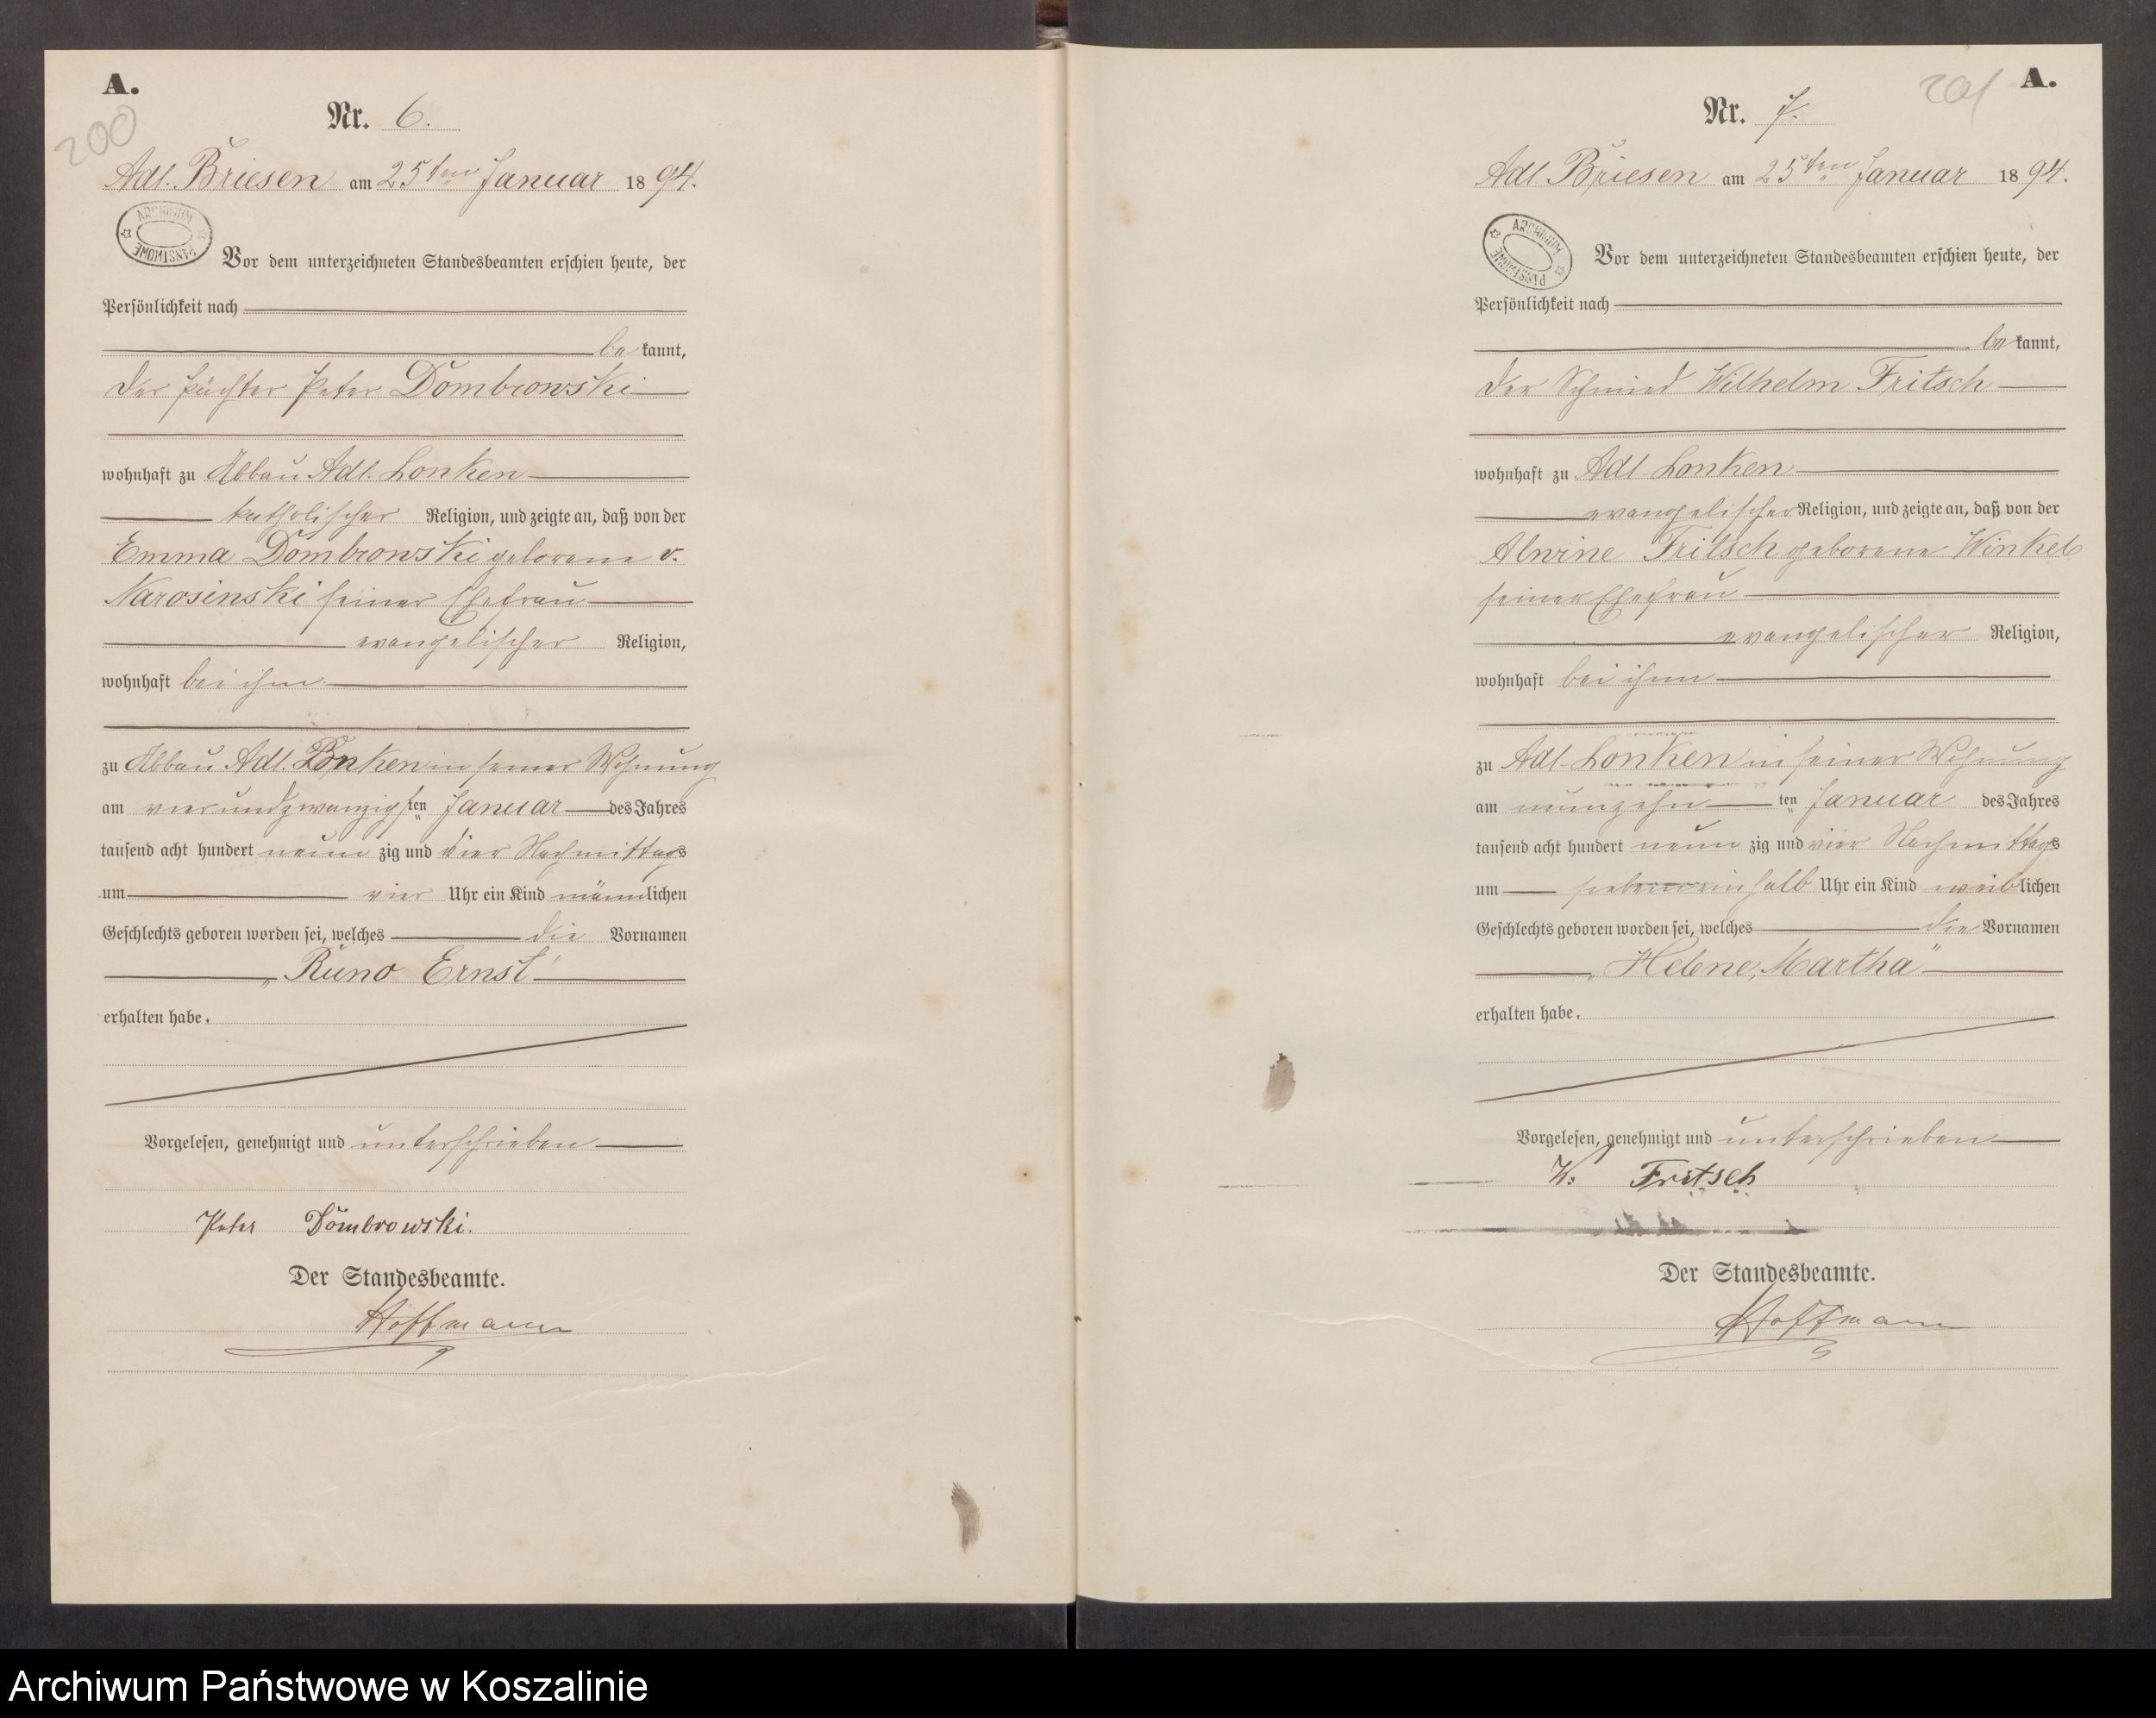 A.
200
Nr. 6.
Adl. Briesen am 25ten Januar 1894.
ARCHIWUM PAŃSTWOWE
Vor dem unterzeichneten Standesbeamten erschien heute, der
Persönlichkeit nach
be kannt,
der Pächter Peter Dombrowski
wohnhaft zu Abbau Adl. Lonken
katholischer Religion, und zeigte an, daß von der
Emma Dombrowski geborene v.
Narosinski seiner Ehefrau
evangelischer Religion,
wohnhaft bei ihm
zu Abbau Adl. Lonken in seiner Wohnung
am vierundzwanzigsten Januar des Jahres
tausend acht hundert neun zig und vier Nachmittags
um vier Uhr ein Kind männlichen
Geschlechts geboren worden sei, welches die Vornamen
„Bruno Ernst"
erhalten habe.
Vorgelesen, genehmigt und unterschrieben
Peter Dombrowski.
Der Standesbeamte.
Hoffmann
201
A.
Nr. 7.
Adl. Briesen am 25ten Januar 1894.
ARCHIWUM PAŃSTWOWE
Vor dem unterzeichneten Standesbeamten erschien heute, der
Persönlichkeit nach
be kannt,
der Schmied Wilhelm Fritsch
wohnhaft zu Adl Lonken
evangelischer Religion, und zeigte an, daß von der
Alwine Fritsch geborene Winkel
seiner Ehefrau
evangelischer Religion,
wohnhaft bei ihm
zu Adl. Lonken in seiner Wohnung
am neunzehn ten Januar des Jahres
tausend acht hundert neun zig und vier Nachmittags
um siebeneinhalb Uhr ein Kind weiblichen
Geschlechts geboren worden sei, welches die Vornamen
„Helene, Martha"
erhalten habe.
Vorgelesen, genehmigt und unterschrieben
W. Fritsch
Der Standesbeamte.
Hoffmann
Archiwum Państwowe w Koszalinie